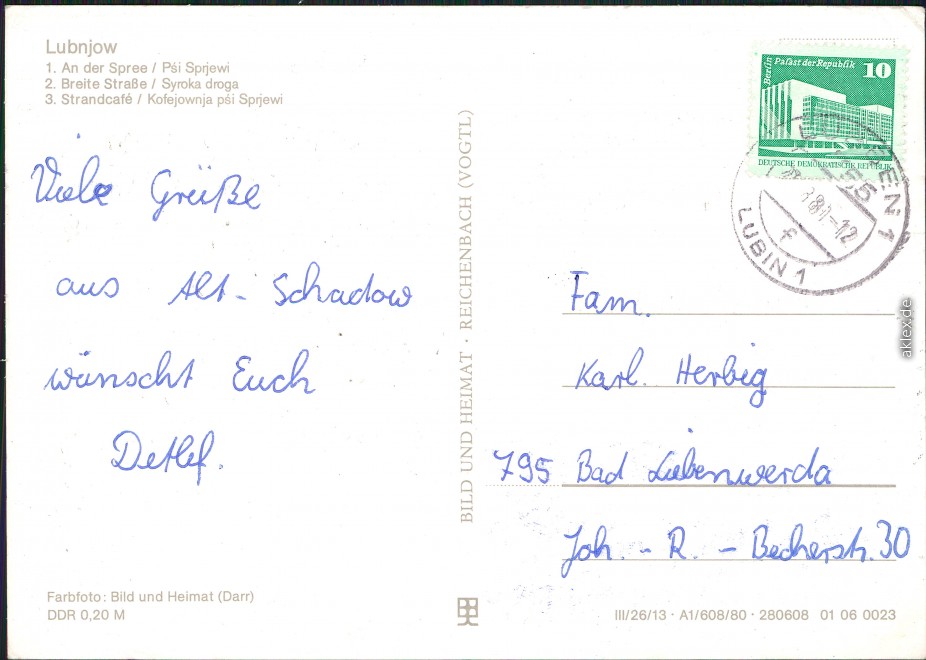 Lubnjow
1. An der Spree / Pśi Sprjewi
2. Breite Straße / Syroka droga
3. Strandcafé / Kofejownja pśi Sprjewi
Viele Grüße
aus Alt-Schadow
wünscht Euch
Detlef.
Farbfoto: Bild und Heimat (Darr)
DDR 0,20 M
BILD UND HEIMAT · REICHENBACH (VOGTL)
Berlin Palast der Republik 10
DEUTSCHE DEMOKRATISCHE REPUBLIK
LUBIN 1
Fam.
Karl. Herbig
795 Bad Liebenwerda
Joh. - R. - Becherstr. 30
III/26/13 · A1/608/80 · 280608 01 06 0023
aklex.de